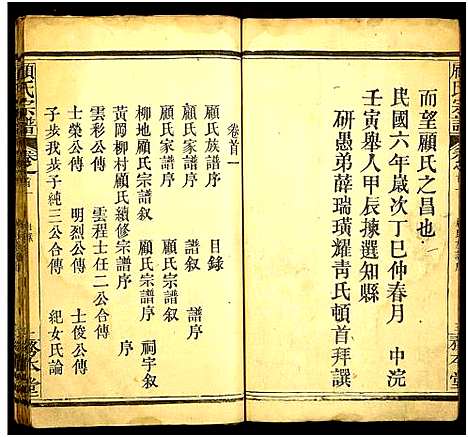 而望顧氏之昌也
民國六年歲次丁巳仲春月 中浣
壬寅舉人甲辰揀選知縣
研愚弟薛瑞璜耀青氏頓首拜譔
卷首一
顧氏族譜序 目錄
顧氏家譜序 譜叙 譜序
顧氏家譜序 顧氏宗譜序
柳地顧氏宗譜叙 顧氏宗譜序 祠宇叙
黃岡柳村顧氏續修宗譜序 序
雲彩公傳 雲程士任二公合傳
士榮公傳 明烈公傳 士俊公傳
子孝我孝子純三公合傳 紀女氏論
顧氏宗譜
卷之首
顧氏宗譜
務本堂